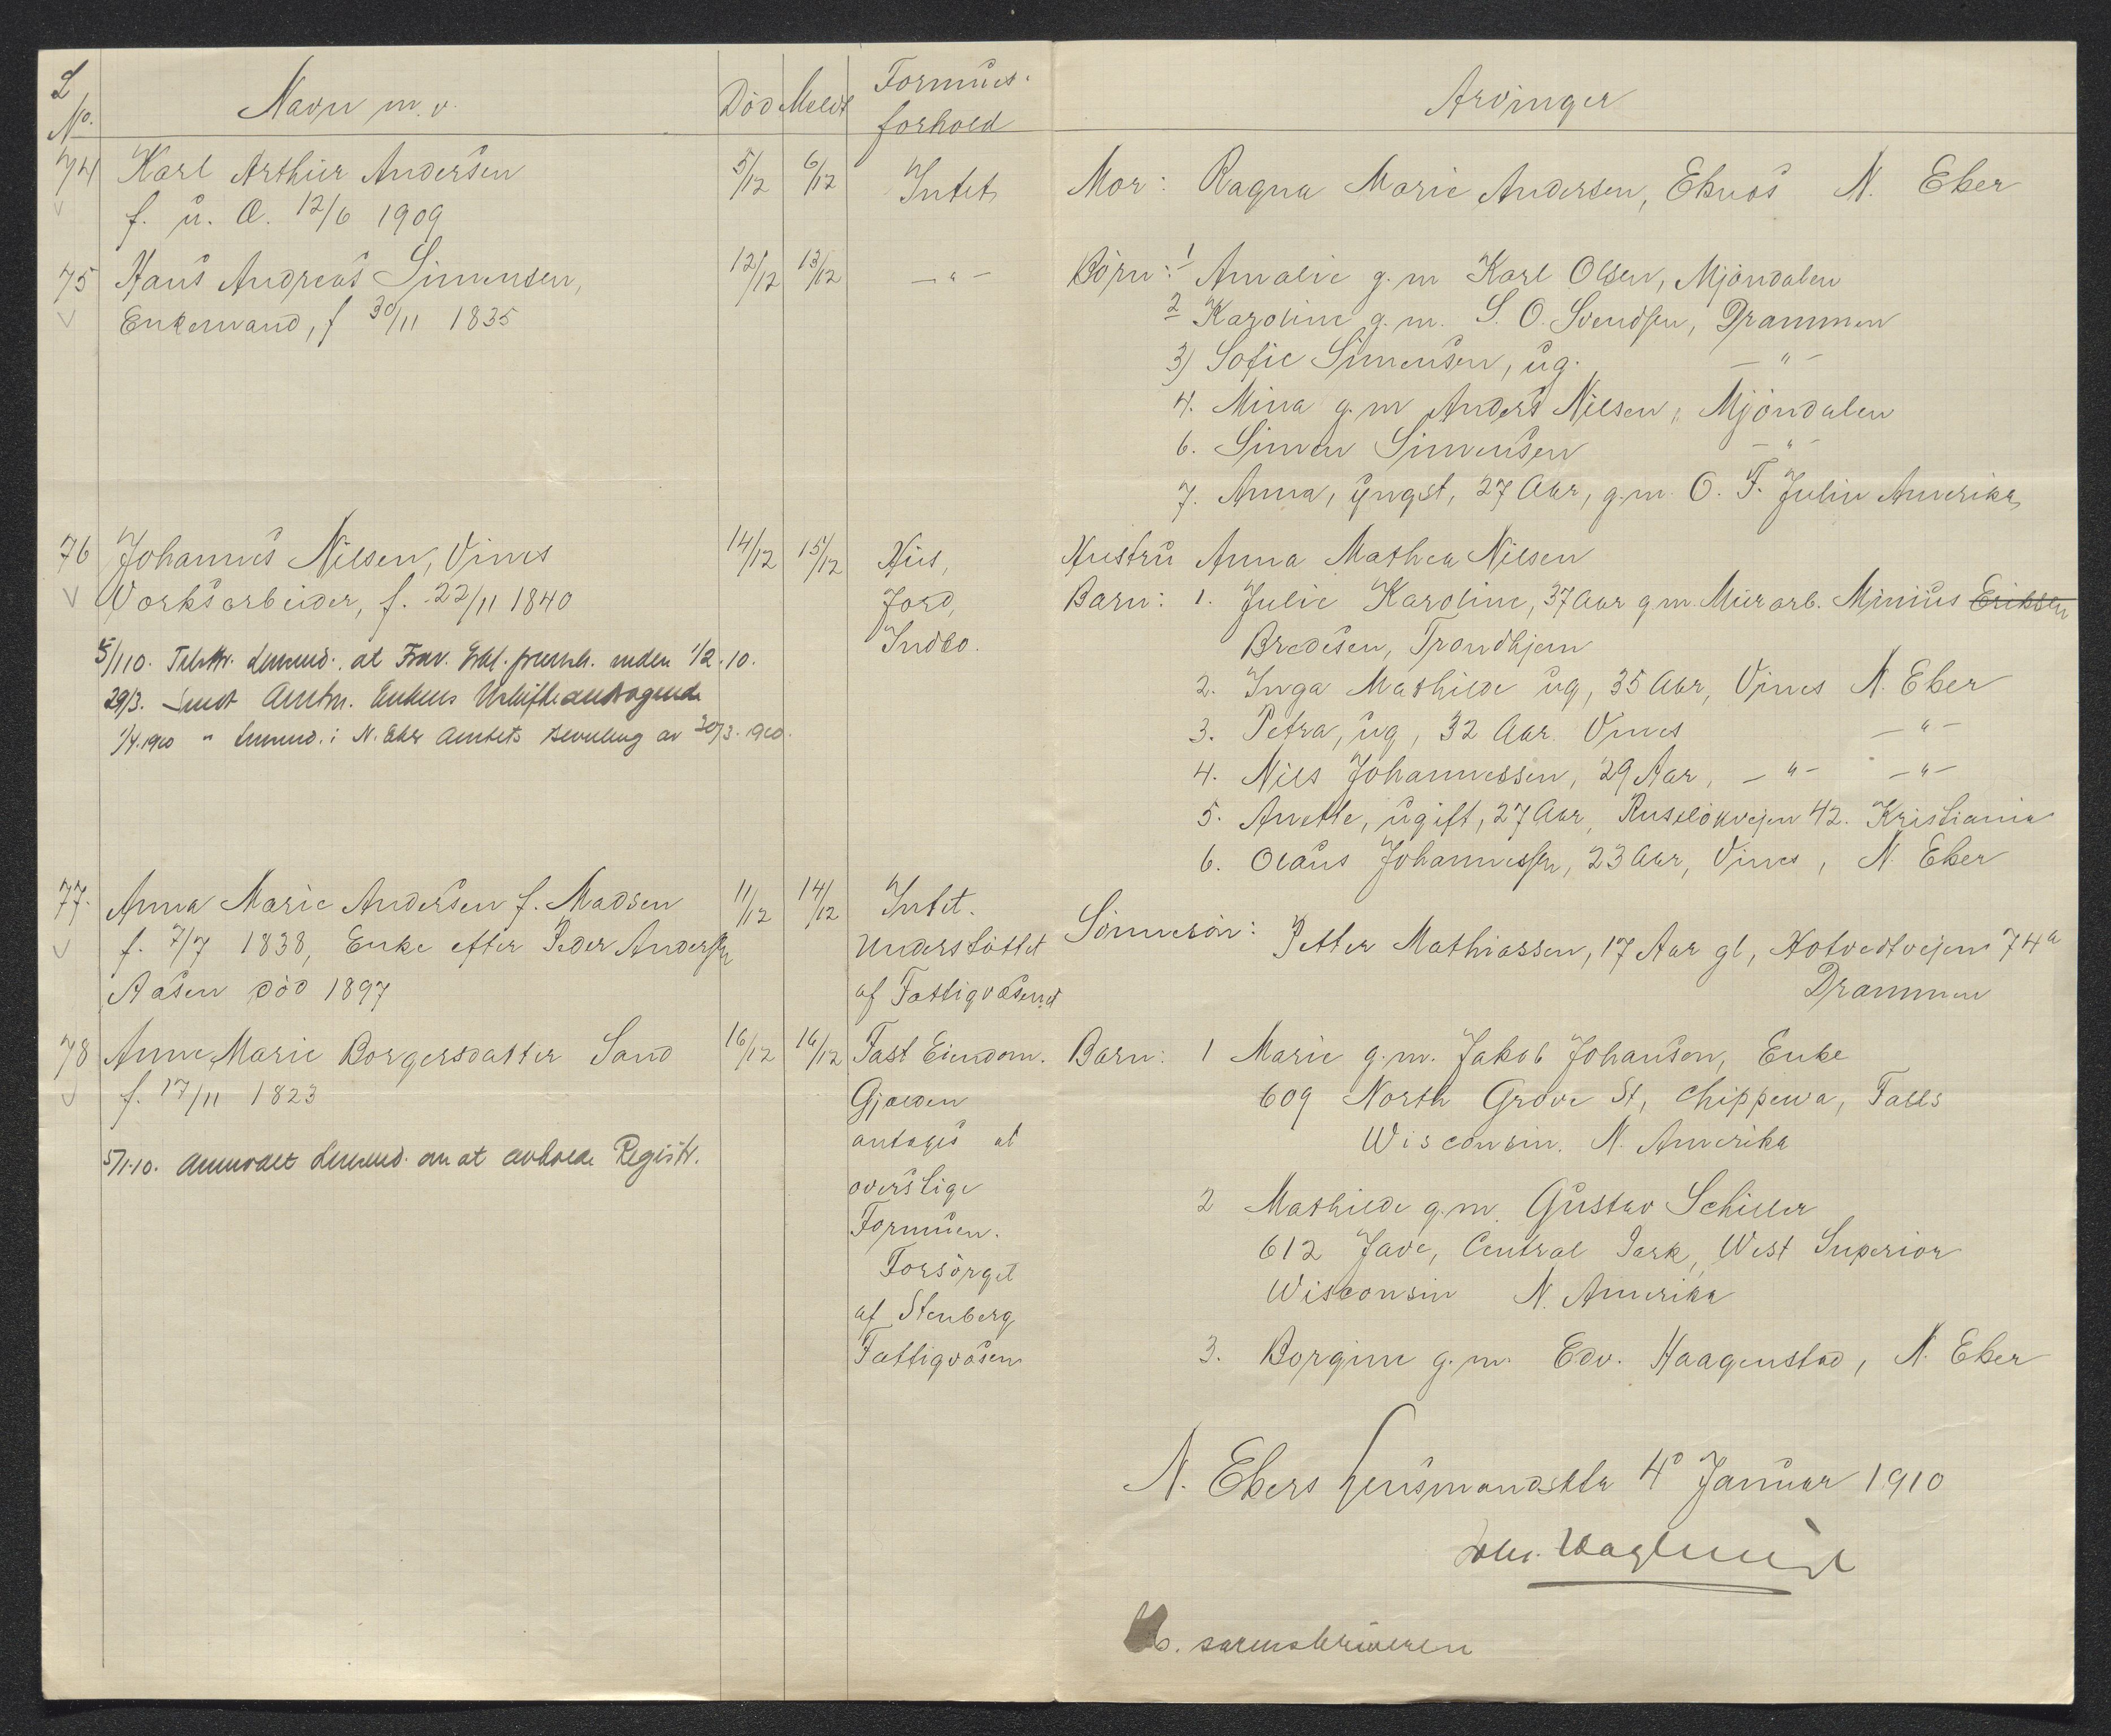 L No. Navn m.v. Död Meldt Formues-
forhold Arvinger
74 Karl Arthur Andersen 5/12 6/12 Intet Mor: Ragna Marie Andersen, Eknös N. Eker
f. u. Æ. 12/6 1909
75 Hans Andreas Simensen, 12/12 13/12 — " — Börn: 1 Amalie g. m Karl Olsen, Mjöndalen
Enkemand, f 30/11 1835 2 Karoline g. m. S. O. Svendsen, Drammen
3) Sofie Simensen, ug. — " —
4. Mina g. m Anders Nilsen, Mjöndalen
6. Simen Simensen — " —
7. Anna, yngst, 27 Aar, g. m. O. F. Julin Amerika
76 Johannes Nilsen, Vines 14/12 15/12 Hus, Hustru Anna Mathea Nilsen
Værksarbeider, f. 22/11 1840 Jord, Barn: 1. Julie Karoline, 37 Aar g. m. Murarb. Minius Eriksen
Indbo. Bredesen, Trondhjem
5/1 10. at unden 1/2.10.
2. Inga Mathilde ug, 35 Aar, Vines N. Eker
29/3. Sendt Amtm. Enkens
3. Petra, ug, 32 Aar. Vines — " —
1/4.1910 " i N. Eker Amtets Bevilling av 30/3.1910.
4. Nils Johannessen, 29 Aar, — " — — " —
5. Anette, ugift, 27 Aar, Ruselökvejen 42. Kristiania
6. Olaus Johannessen, 23 Aar, Vines, N. Eker
77. Anna Marie Andersen f. Madsen 11/12 14/12 Intet. Sönnesön: Petter Mathiassen, 17 Aar gl, Hotvedtvejen 74a
f. 7/7 1838, Enke efter Peder Andersen Understöttet Drammen
Aasen död 1897 af Fattigvæsenet
78 Anne Marie Borgersdatter Sand 16/12 16/12 Fast Eiendom. Barn: 1 Marie g. m. Jakob Johansen, Enke
f. 17/11 1823 Gjælden 609 North Grove St, Chippewa, Falls
antages at Wisconsin. N. Amerika
5/1-10. Anmodet om at avholde Registr.
overstige 2 Mathilde g. m. Gustav Schiller
Formuen. 612 Jave, Central Park, West Superior
Forsörget Wisconsin N. Amerika
af Stenberg
Fattigvæsen 3. Borgine g. m. Edv. Haagenstad, N. Eker
N. Ekers Lensmandsbt 4de Januar 1910
sorenskriveren